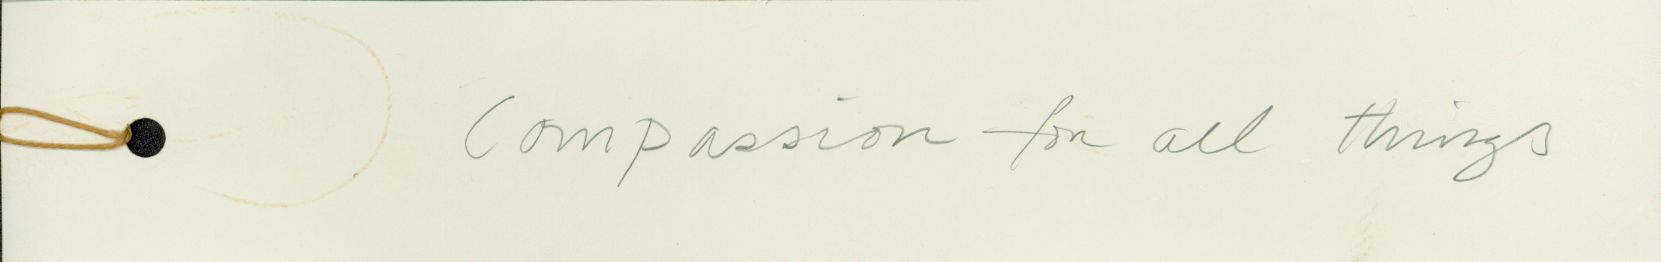 Compassion for all things